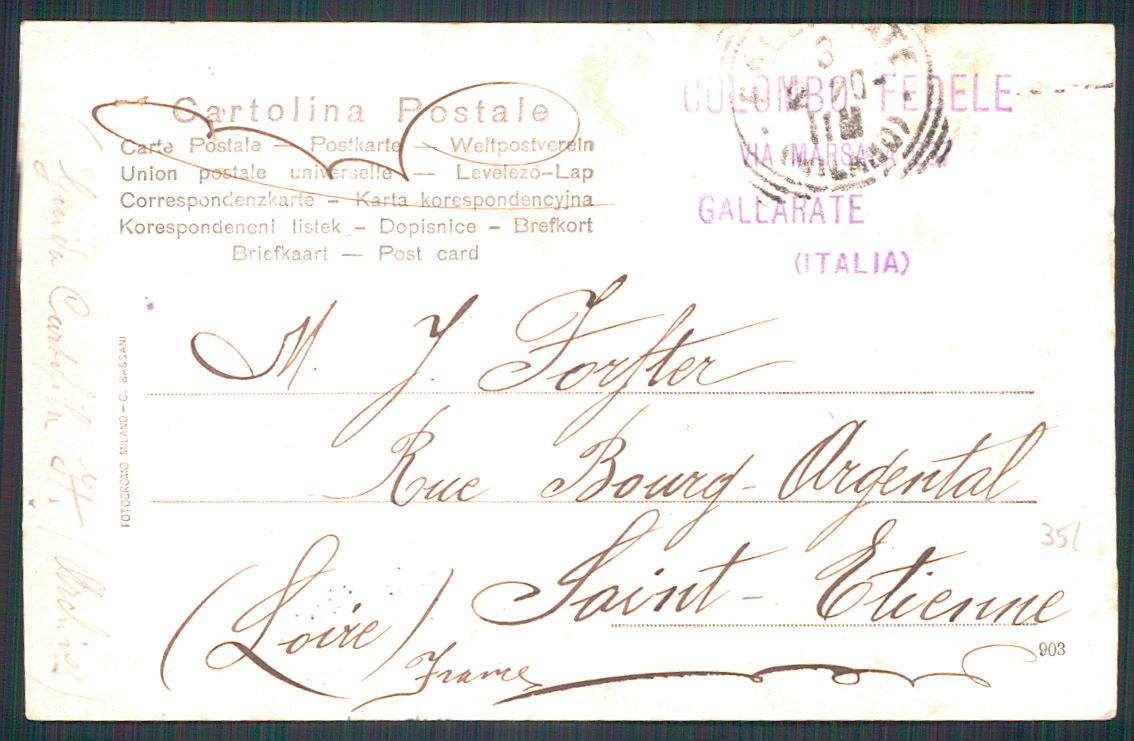 Cartolina Postale
Carte Postale — Postkarte — Weltpostverein
Union postale universelle — Levelezö-Lap
Correspondenzkarte — Karta korespondencyjna
Korespondencni listek — Dopisnice — Brefkort
Briefkaart — Post card
COLOMBO FEDELE
VIA MARSALA
GALLARATE
(ITALIA)
3
(MILANO)
M. J. Forster
Rue Bourg-Argental
Saint-Etienne
(Loire)
France
903
FOTOCROMO MILANO — C. BASSANI